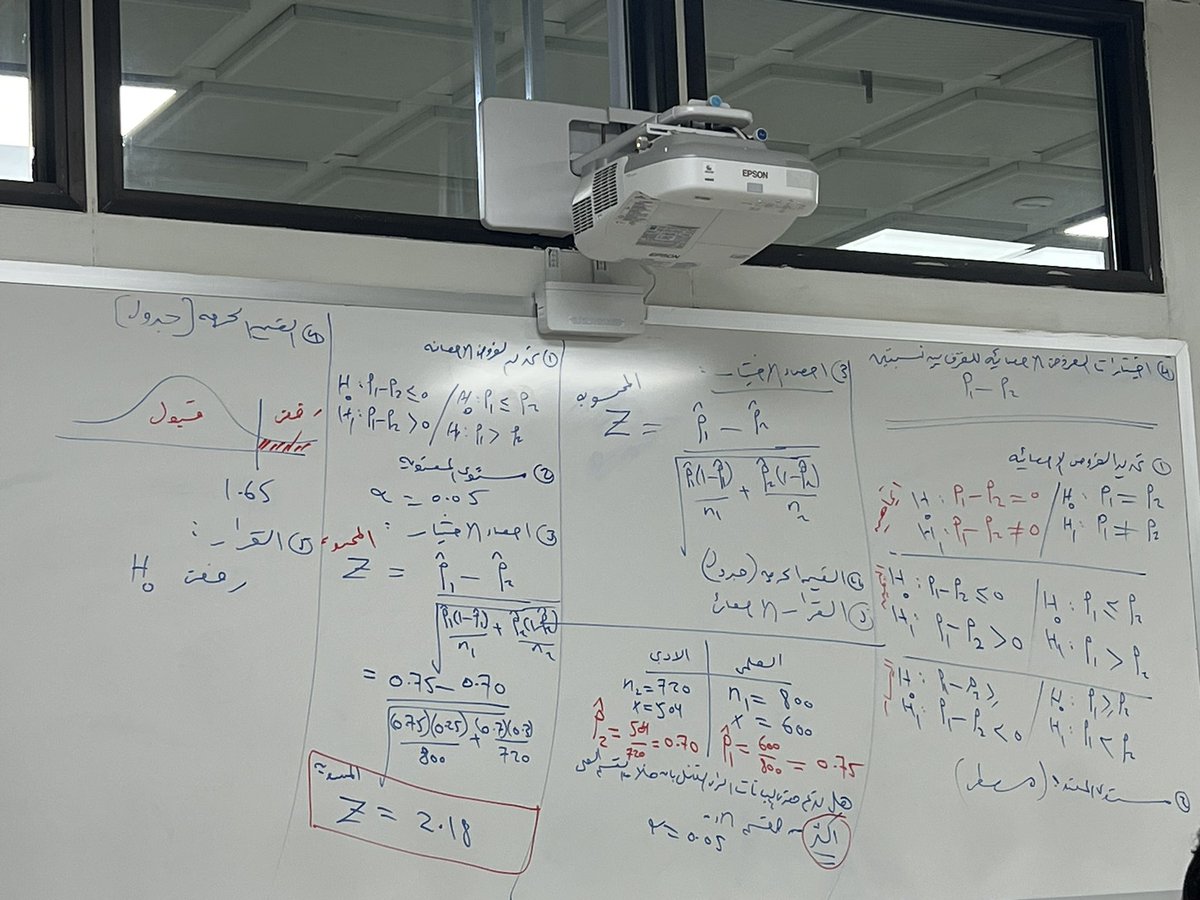 EPSON
EPSON
④ اختبارات الفروض الإحصائية للفرق بين نسبتين
P₁ − P₂
① تحديد الفروض الإحصائية
H₀: P₁−P₂ = 0 / H₀: P₁ = P₂
H₁: P₁−P₂ ≠ 0 / H₁: P₁ ≠ P₂
H₀: P₁−P₂ ≤ 0 / H₀: P₁ ≤ P₂
H₁: P₁−P₂ > 0 / H₁: P₁ > P₂
H₀: P₁−P₂ ≥ / H₀: P₁ ≥ P₂
H₁: P₁−P₂ < 0 / H₁: P₁ < P₂
② مستوى
③ إحصاء الاختبار:
المحسوبة
Z = (P̂₁ − P̂₂) / √(P̂₁(1−P̂₁)/n₁ + P̂₂(1−P̂₂)/n₂)
④ القيمة الحرجة (جدول)
⑤ القرار الإحصائي
العلمي | الأدبي
n₁ = 800 | n₂ = 720
x = 600 | x = 504
P̂₁ = 600/800 = 0.75 | P̂₂ = 504/720 = 0.70
هل تدعم هذه البيانات الرأي القائل بأن
أكثر من القسم
α = 0.05
① تحديد الفروض الإحصائية
H₀: P₁−P₂ ≤ 0 / H₀: P₁ ≤ P₂
H₁: P₁−P₂ > 0 / H₁: P₁ > P₂
② مستوى المعنوية
α = 0.05
③ إحصاء الاختبار:
المحسوبة
Z = (P̂₁ − P̂₂) / √(P̂₁(1−P̂₁)/n₁ + P̂₂(1−P̂₂)/n₂)
= (0.75 − 0.70) / √((0.75)(0.25)/800 + (0.7)(0.3)/720)
المحسوبة
Z = 2.18
④ القيمة الحرجة (جدول)
قبول
رفض
1.65
⑤ القرار:
رفض H₀